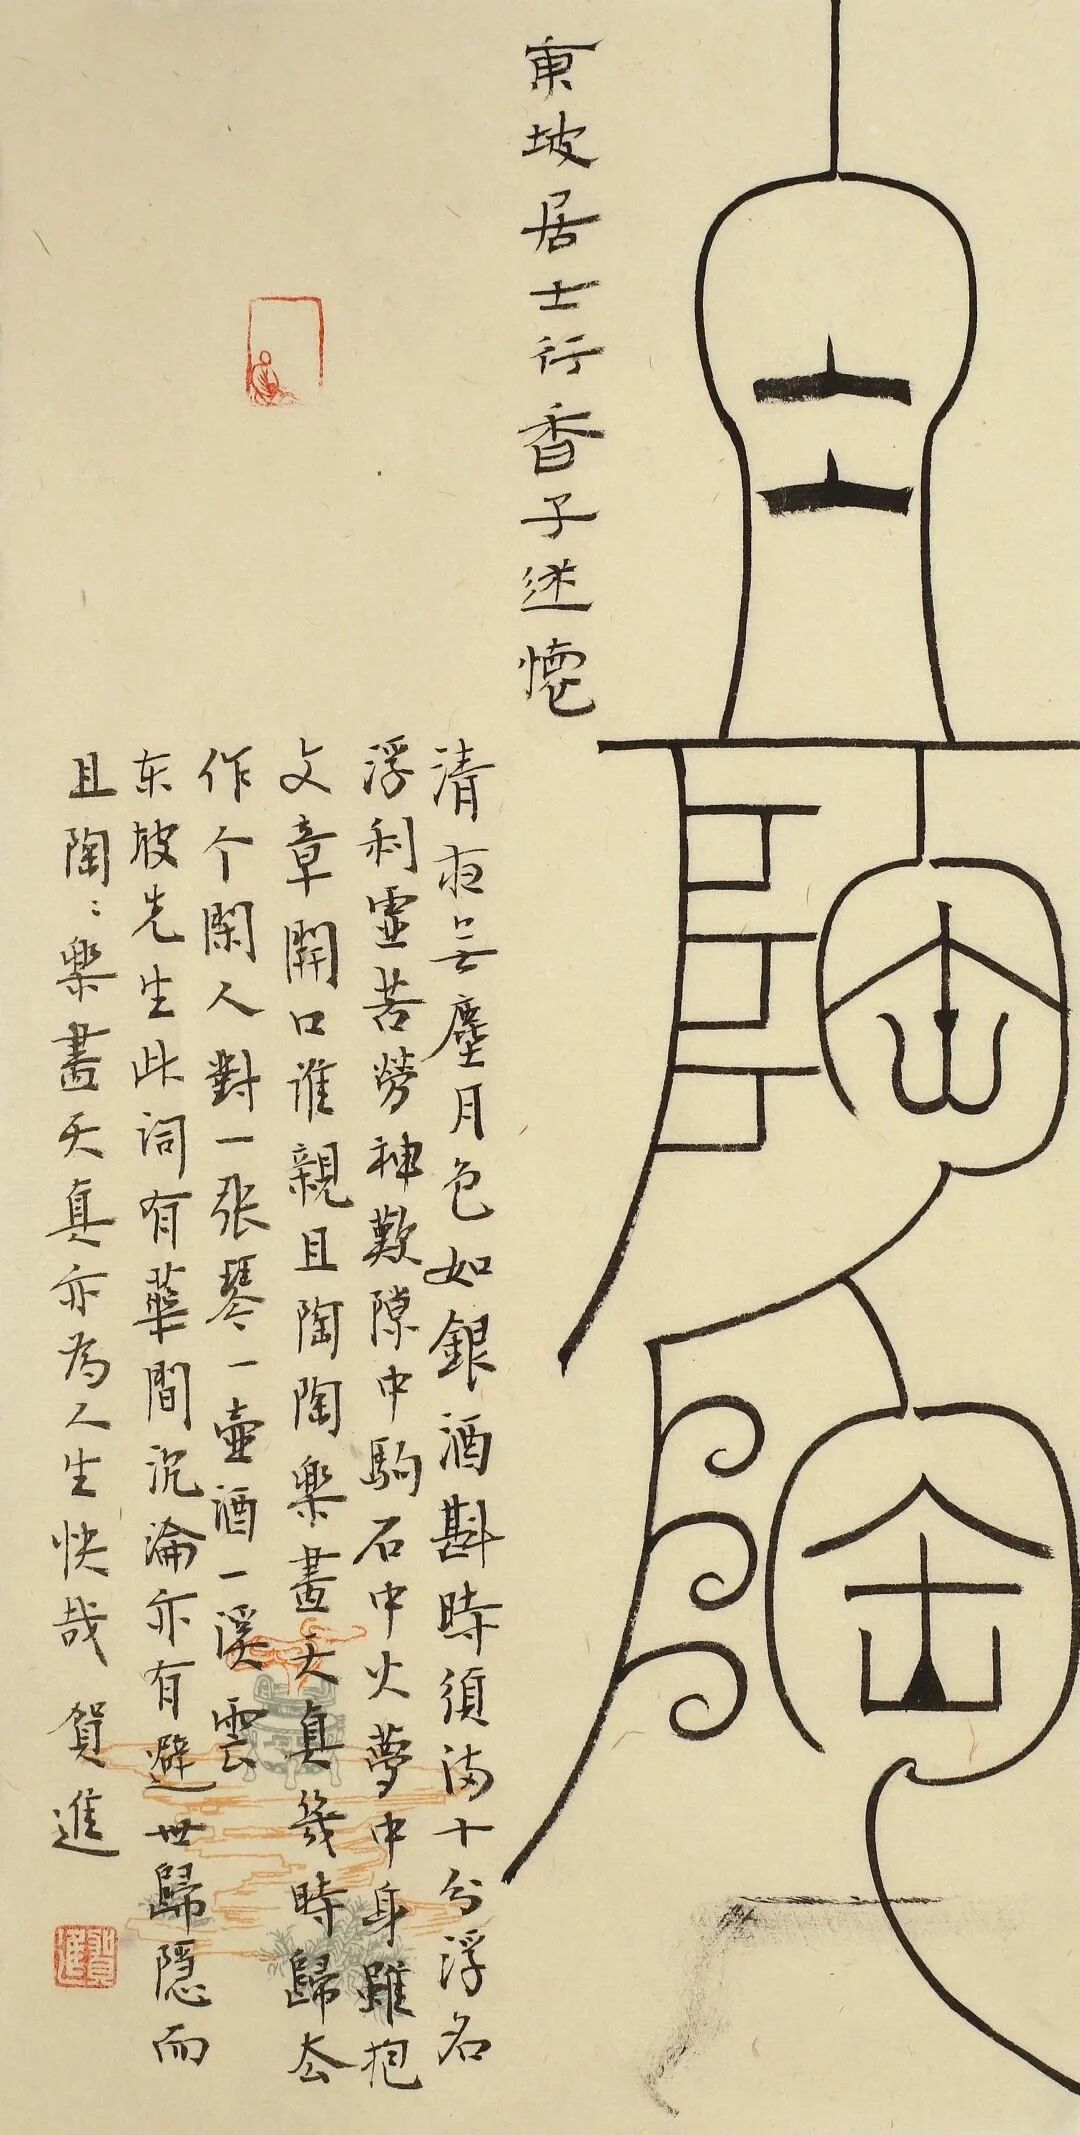 且陶陶
東坡居士行香子述懷
清夜無塵月色如銀酒斟時須滿十分浮名
浮利虛苦勞神歎隙中駒石中火夢中身雖抱
文章開口誰親且陶陶樂盡天真幾時歸去
作个閑人對一张琴一壺酒一溪雲
东坡先生此詞有華間沉淪亦有避世歸隱而
且陶〻樂盡天真亦為人生快哉 賀進
賀進